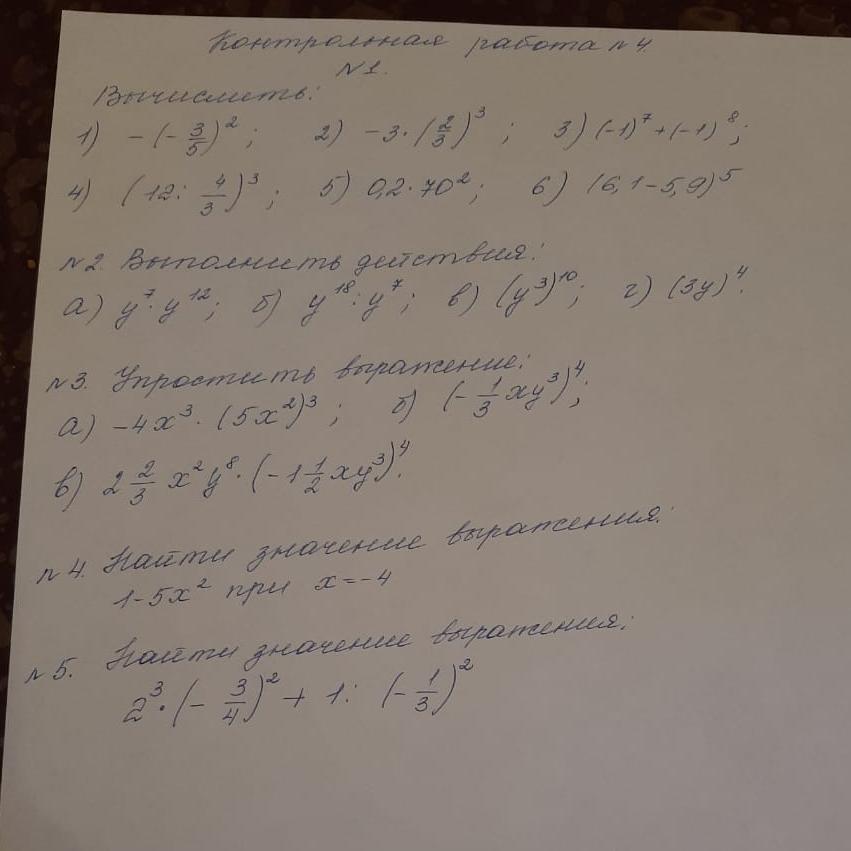 Контрольная работа №4.
№1.
Вычислить:
1) -(-3/5)²; 2) -3·(2/3)³; 3) (-1)⁷+(-1)⁸;
4) (12:4/3)³; 5) 0,2·70²; 6) (6,1-5,9)⁵
№2. Выполнить действия:
а) y⁷·y¹²; б) y¹⁸:y⁷; в) (y³)¹⁰; г) (3y)⁴.
№3. Упростить выражение:
а) -4x³·(5x²)³; б) (-1/3xy³)⁴;
в) 2 2/3 x²y⁸·(-1 1/2 xy³)⁴.
№4. Найти значение выражения:
1-5x² при x=-4
№5. Найти значение выражения:
2³·(-3/4)²+1:(-1/3)²